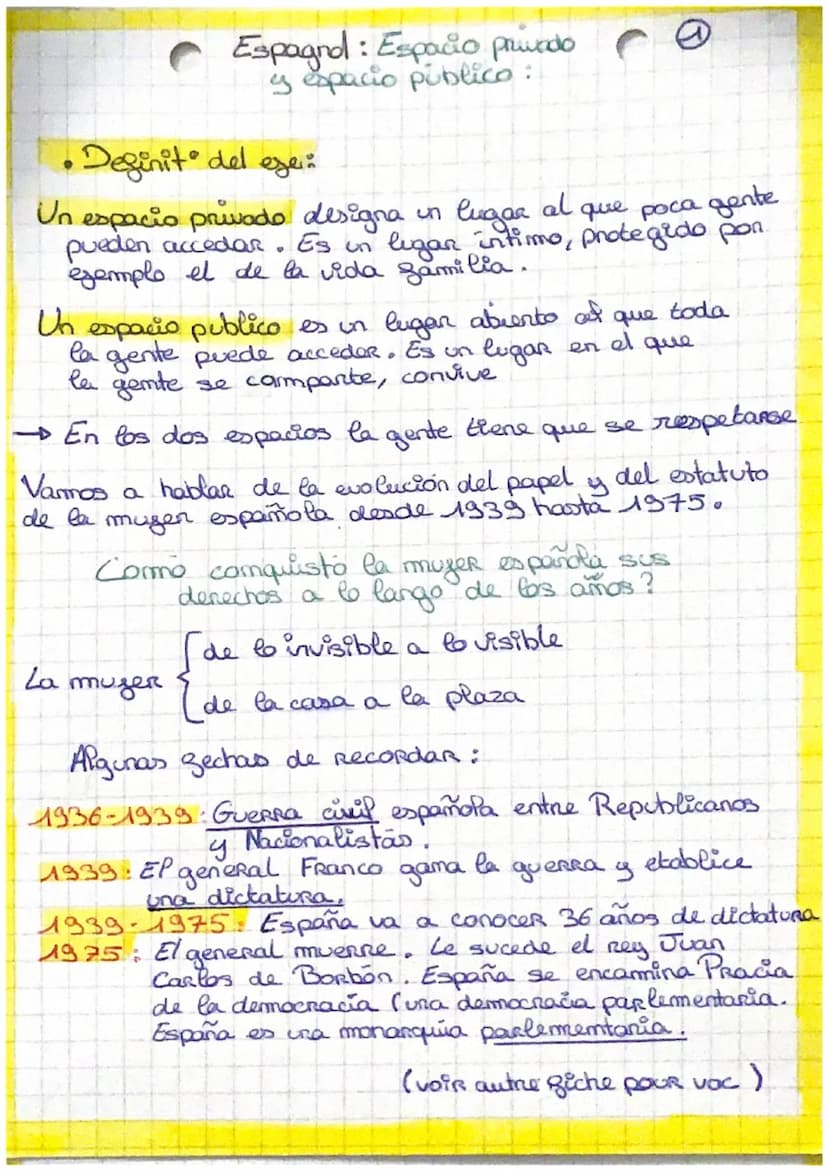 Espagnol : Espacio privado
①
y espacio público :
• Definit° del eje :
Un espacio privado designa un lugar al que poca gente
pueden accedar. Es un lugar íntimo, protegido por
ejemplo el de la vida familia.
Un espacio publico es un lugar abierto al que toda
la gente puede acceder. Es un lugar en el que
la gente se comparte, convive
→ En los dos espacios la gente tiene que se respetarse
Vamos a hablar de la evolución del papel y del estatuto
de la mujer española desde 1939 hasta 1975.
Como conquistó la mujer española sus
derechos a lo largo de los años ?
La mujer { de lo invisible a lo visible
de la casa a la plaza
Algunas fechas de recordar :
1936-1939 : Guerra civil española entre Republicanos
y Nacionalistas.
1939 : El general Franco gana la guerra y etablice
una dictatura.
1939-1975 : España va a conocer 36 años de dictatura
1975 : El general muerre. Le sucede el rey Juan
Carlos de Borbón. España se encamina Pracia
de la democracia (una democracia parlementaria.
España es una monarquía parlementaria.
(voir autre fiche pour voc )